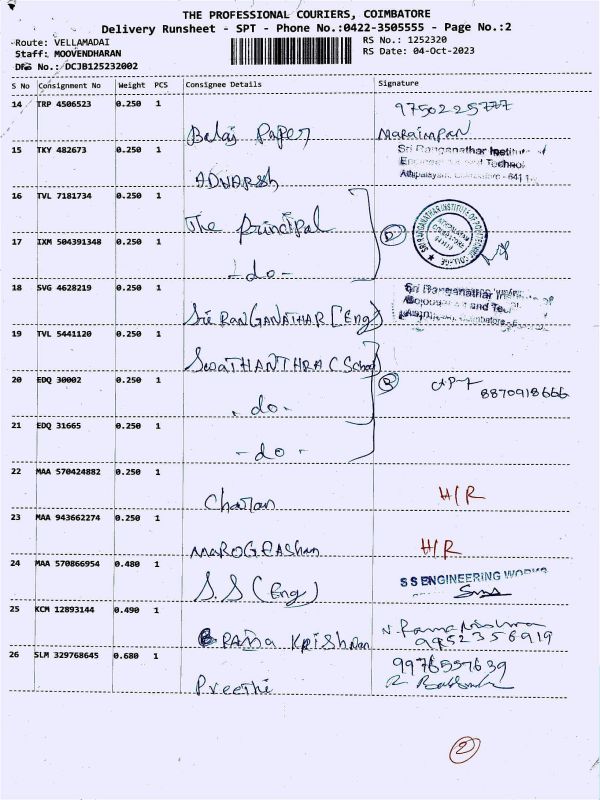 THE PROFESSIONAL COURIERS, COIMBATORE
Delivery Runsheet - SPT - Phone No.:0422-3505555 - Page No.:2
Route: VELLAMADAI RS No.: 1252320
Staff: MOOVENDHARAN RS Date: 04-Oct-2023
DRS No.: DCJB125232002
S No Consignment No Weight PCS Consignee Details Signature
14 TRP 4506523 0.250 1 9750225777
Balaj Paper
15 TKY 482673 0.250 1 Sri Ranganathar Institute of
Technol
ADHARSH
16 TVL 7181734 0.250 1
The Principal
17 IXM 504391348 0.250 1
- do -
18 SVG 4628219 0.250 1 Sri Ranganathar
SRI RANGANATHAR [Eng]
19 TVL 5441120 0.250 1
SWATHANTHRA (School)
20 EDQ 30002 0.250 1 8870918666
- do -
21 EDQ 31665 0.250 1
- do -
22 MAA 570424882 0.250 1 H/R
Charan
23 MAA 943662274 0.250 1 H/R
24 MAA 570866954 0.480 1 S S ENGINEERING WORKS
S.S (Eng)
25 KCM 12893144 0.490 1 N. Rama Krishnan
9952356919
RAMA KRISHNAN
26 SLM 329768645 0.680 1 9976557639
Preethi
2